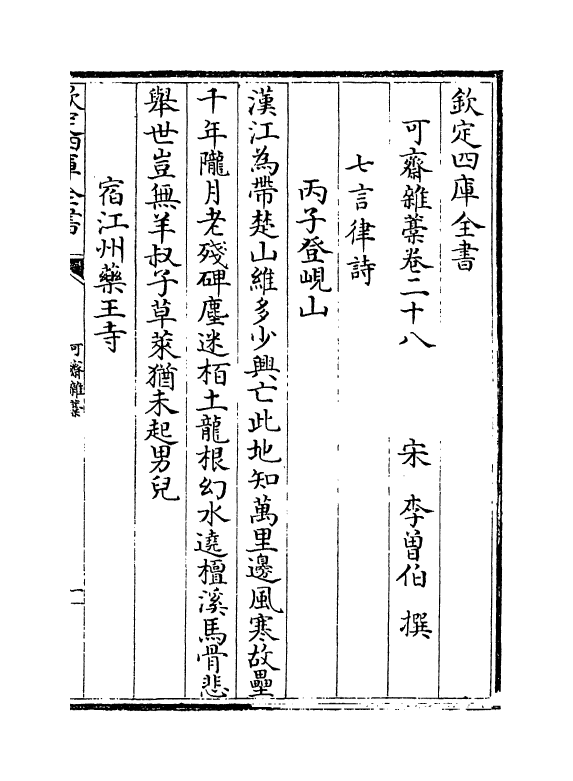 欽定四庫全書
可齋雜藁卷二十八
宋 李曾伯 撰
七言律詩
丙子登峴山
漢江為帶楚山維多少興亡此地知萬里邊風寒故壘
千年隴月老殘碑塵迷栢土龍根幻水遶檀溪馬骨悲
舉世豈無羊叔子草萊猶未起男兒
宿江州藥王寺
欽定四庫全書
可齋雜藁
一